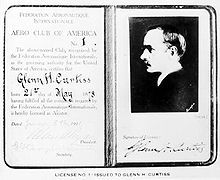 FEDERATION AERONAUTIQUE
INTERNATIONALE
AERO CLUB OF AMERICA
No 1.
The above-named Club, recognized by
the Federation Aeronautique Internationale, as
the governing authority for the United
States of America, certifies that
Glenn H. Curtiss
born 21st day May 1878
having fulfilled all the conditions required by
the Federation Aeronautique Internationale,
is hereby licensed as Aviator.
Signature of Licensee
Glenn H. Curtiss
LICENSE NO. 1 ISSUED TO GLENN H. CURTISS